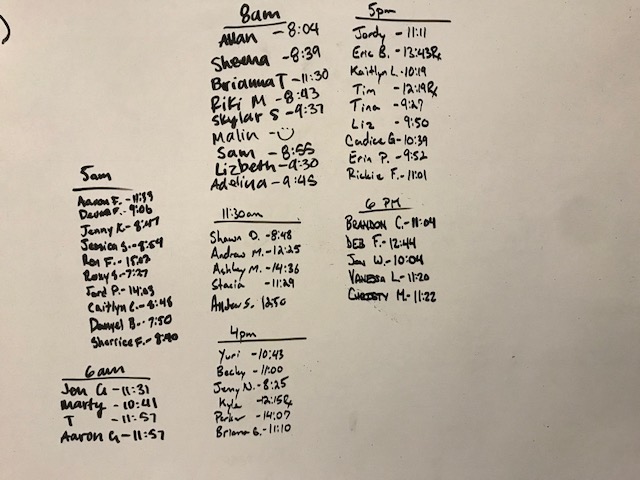 5am
Aaron F. - 11:99
Devon F. - 9:06
Jenny K. - 8:47
Jessica S. - 8:54
Ron F. - 15:02
Roxy S. - 7:27
Jord P. - 14:03
Caitlyn C. - 8:48
Danyel B. - 7:50
Sherrice F. -
6am
Jen G - 11:31
Marty - 10:41
T - 11:57
Aaron G - 11:57
8am
Allan - 8:04
Sheena - 8:39
Brianna T - 11:30
Riki M - 8:43
Skylar S - 9:37
Malin - ☺
Sam - 8:55
Lizbeth - 9:30
Adelina - 9:45
11:30am
Shawn D. - 8:48
Andrew M. - 12:25
Ashley M. - 14:36
Stacia - 11:29
Andrew S. 12:50
4pm
Yuri - 10:43
Becky - 11:00
Jerry N. - 8:25
Kyle - 12:15Rx
Parker - 14:07
Briana G. - 11:10
5pm
Jordy - 11:11
Eric B. - 13:43Rx
Kaitlyn L - 10:19
Tim - 12:19Rx
Tina - 9:27
Liz - 9:50
Candice G - 10:39
Erin P. - 9:52
Rickie F. - 11:01
6 PM
BRANDON C. - 11:04
DEB F. - 12:44
Jon W. - 10:04
VANESSA L - 11:20
CHRISTY M. - 11:22